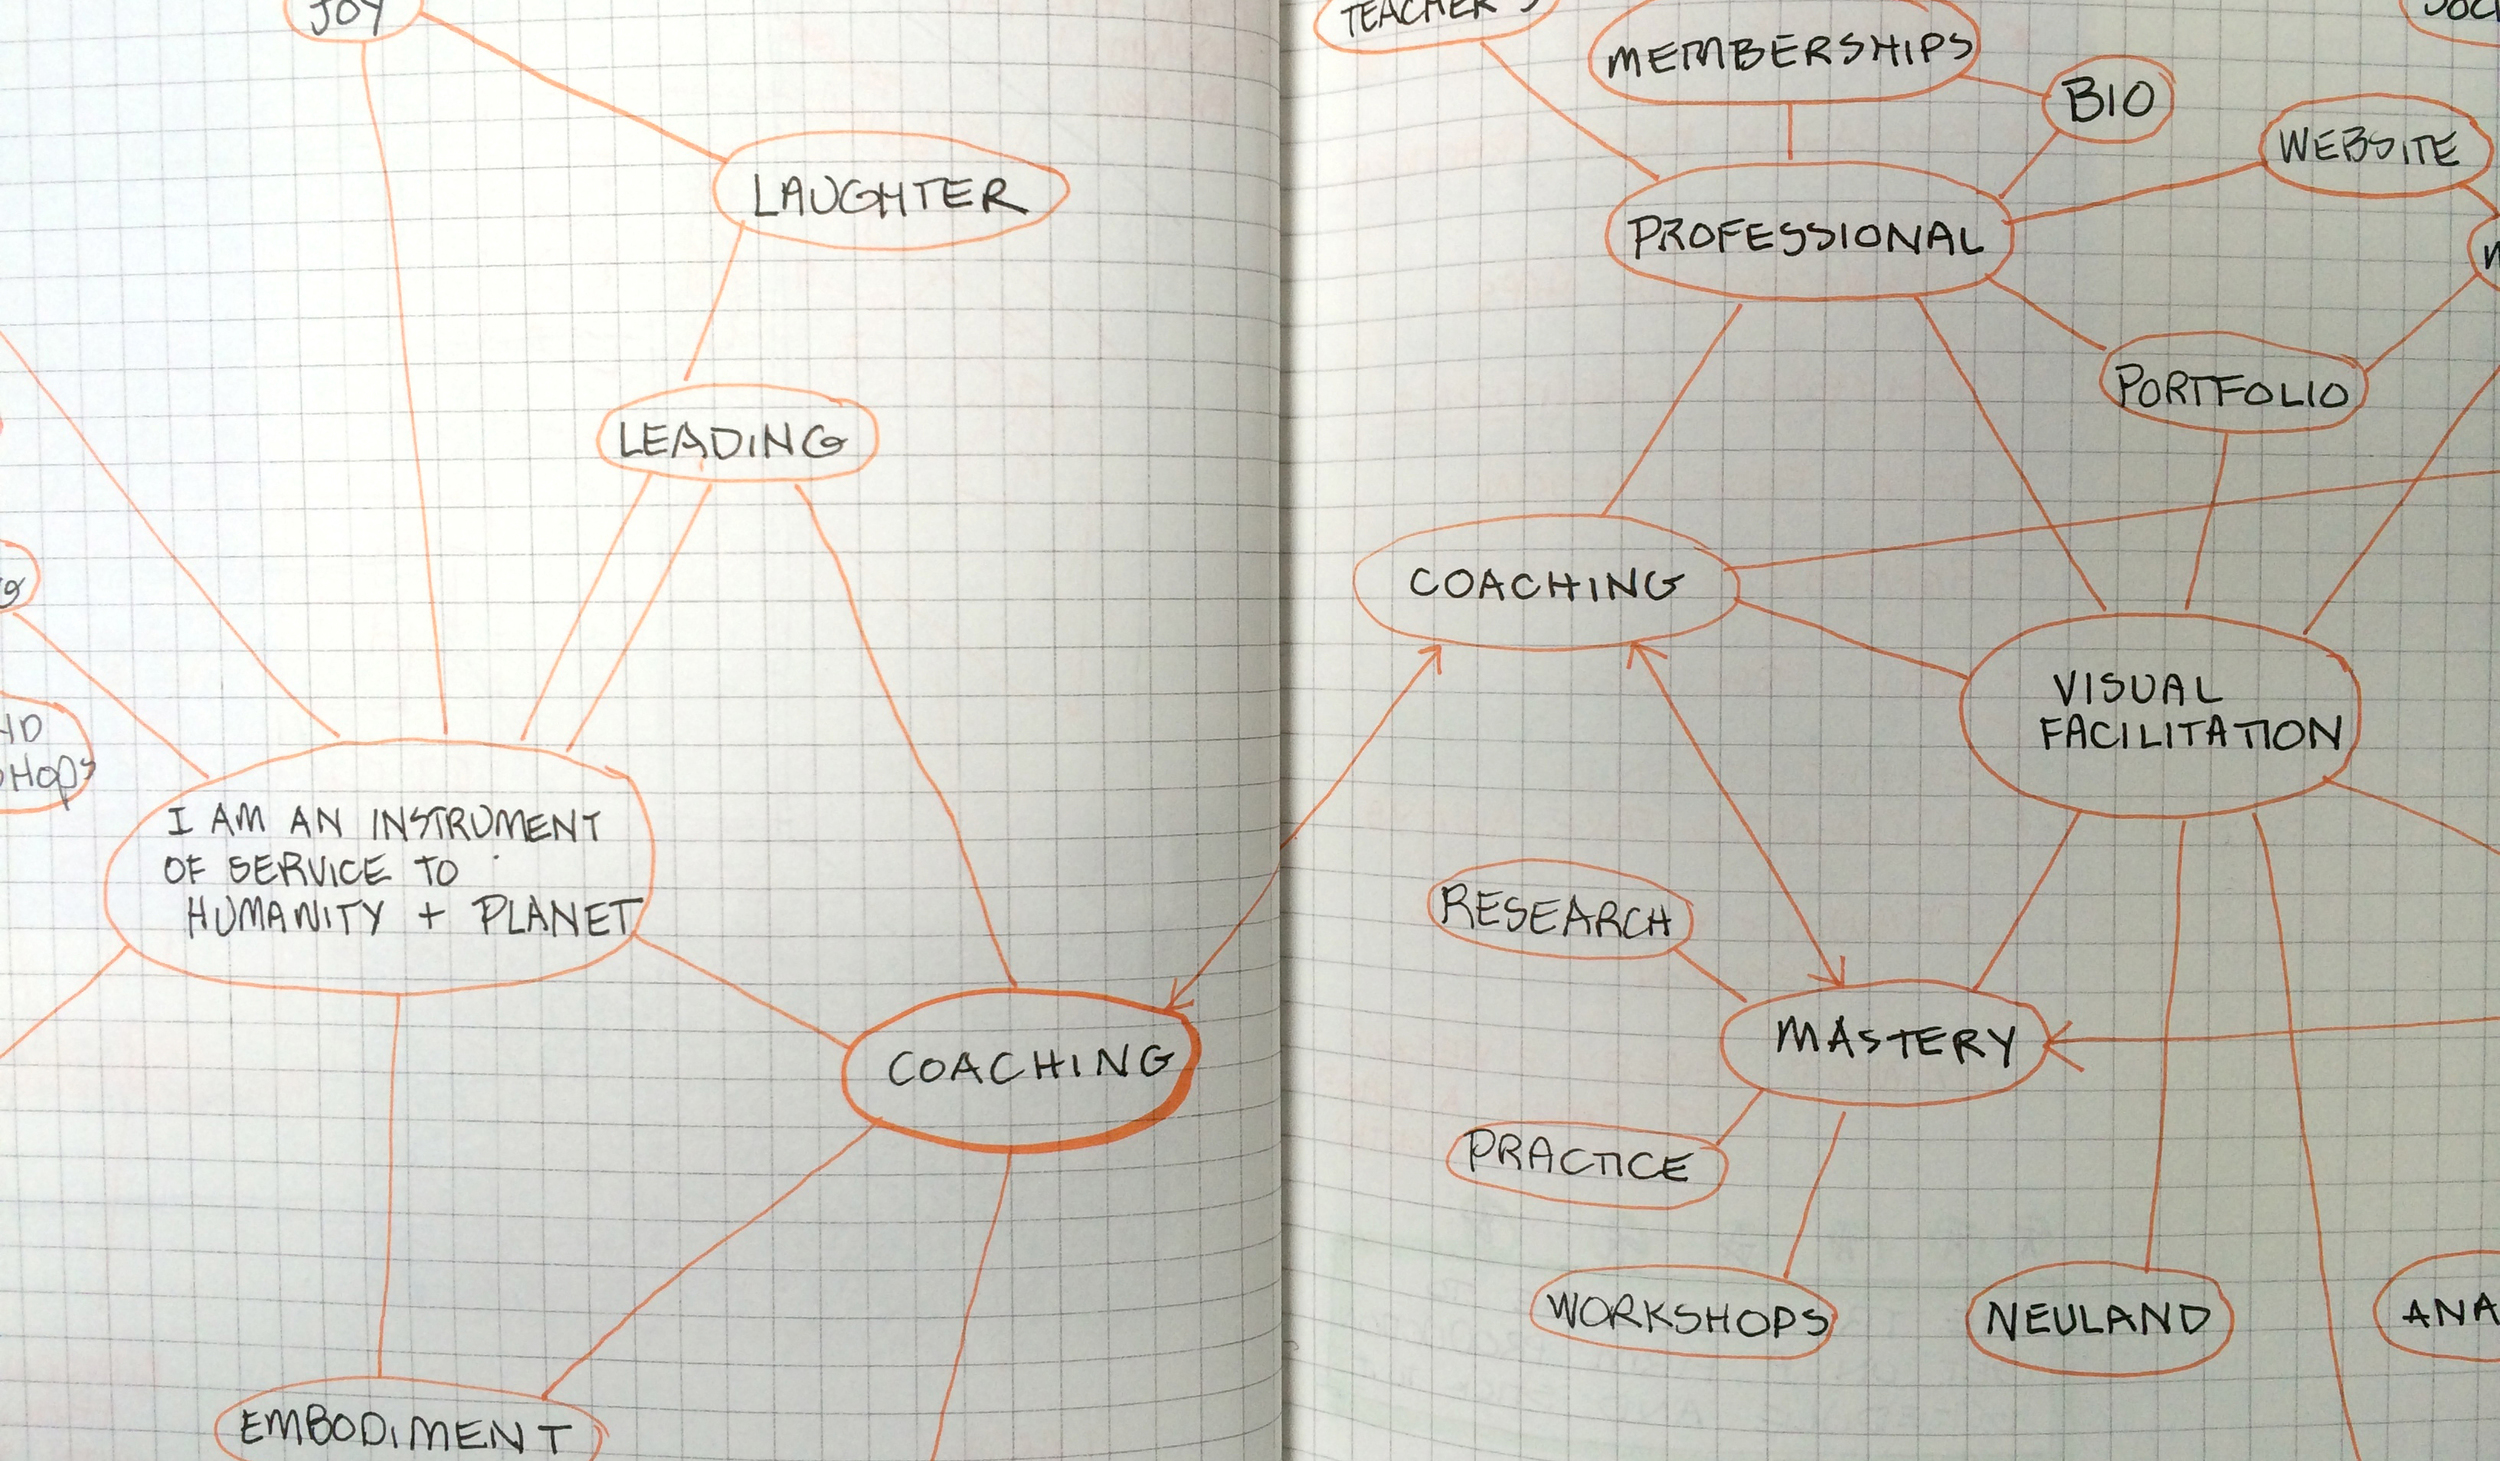 JOY
LAUGHTER
LEADING
I AM AN INSTRUMENT
OF SERVICE TO
HUMANITY + PLANET
COACHING
EMBODIMENT
TEACHER'S
MEMBERSHIPS
BIO
WEBSITE
PROFESSIONAL
PORTFOLIO
COACHING
VISUAL
FACILITATION
RESEARCH
MASTERY
PRACTICE
WORKSHOPS
NEULAND
ANA